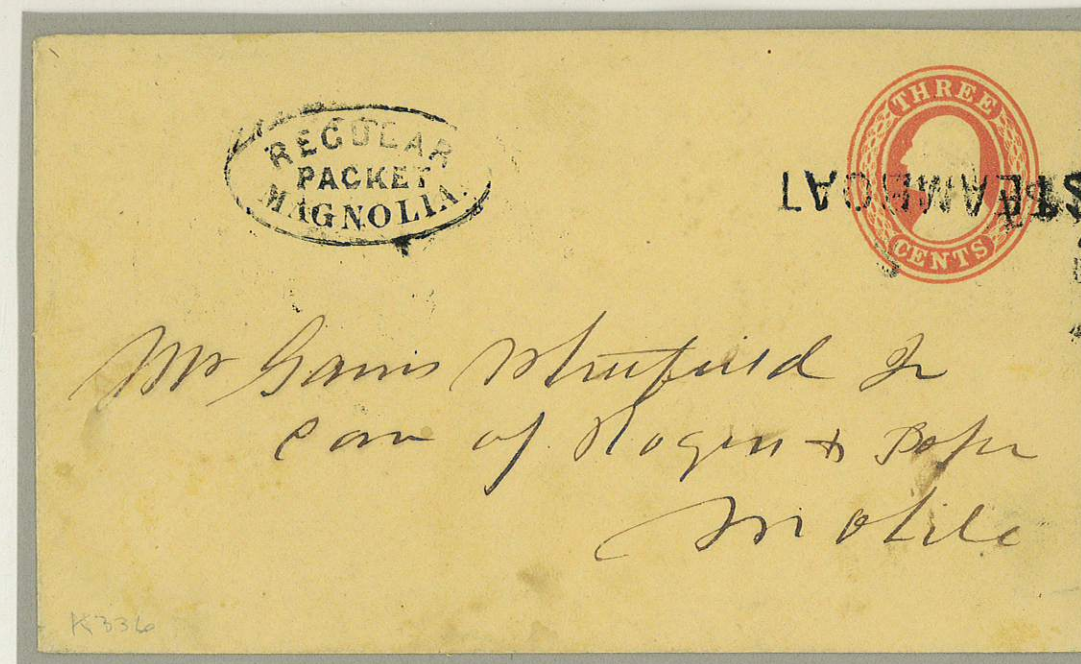 REGULAR
PACKET
MAGNOLIA.
THREE
CENTS
STEAMBOAT
Mr Gaius Whitfield Jr
Care of Rogers & 
Mobile
K336